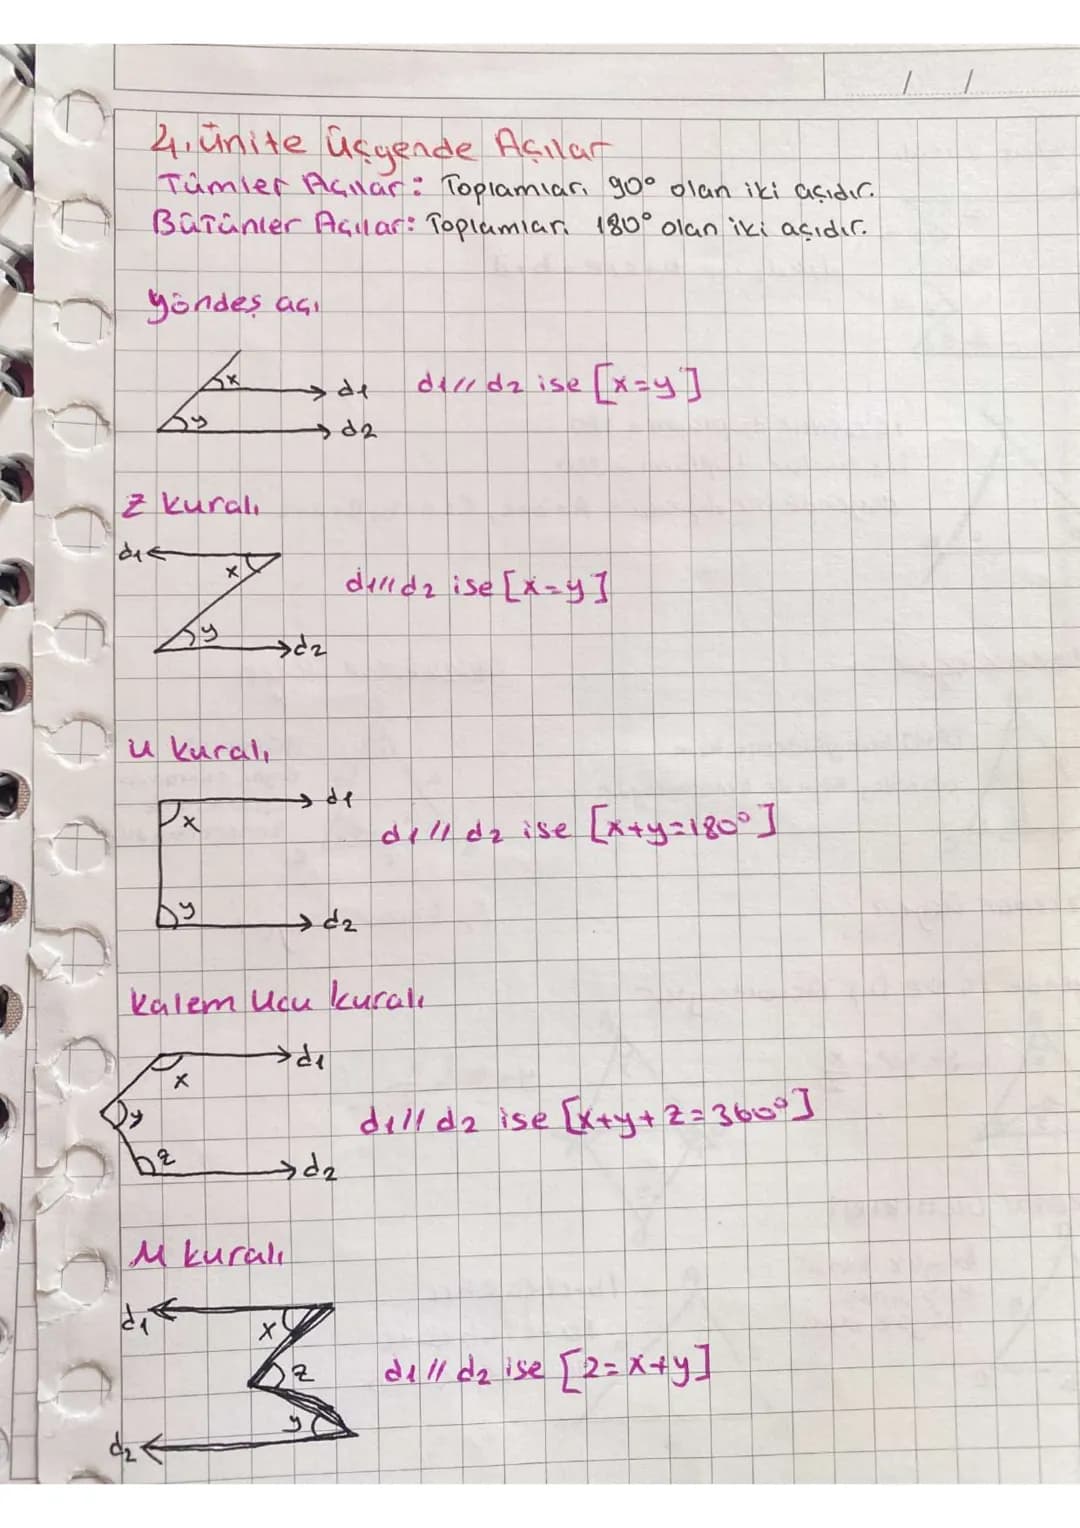 / /
4. ünite Üçgende Açılar
Tümler Açılar: Toplamları 90° olan iki açıdır.
Bütünler Açılar: Toplamları 180° olan iki açıdır.
Yöndeş açı
x d1 d1// d2 ise [x=y]
y d2
Z kuralı
d1 x
d1//d2 ise [x=y]
y d2
U kuralı
d1
x d1 // d2 ise [x+y=180°]
y d2
Kalem Ucu kuralı
d1
x
y d1// d2 ise [x+y+z=360°]
z d2
M kuralı
d1 x
z d1 // d2 ise [z=x+y]
y
d2